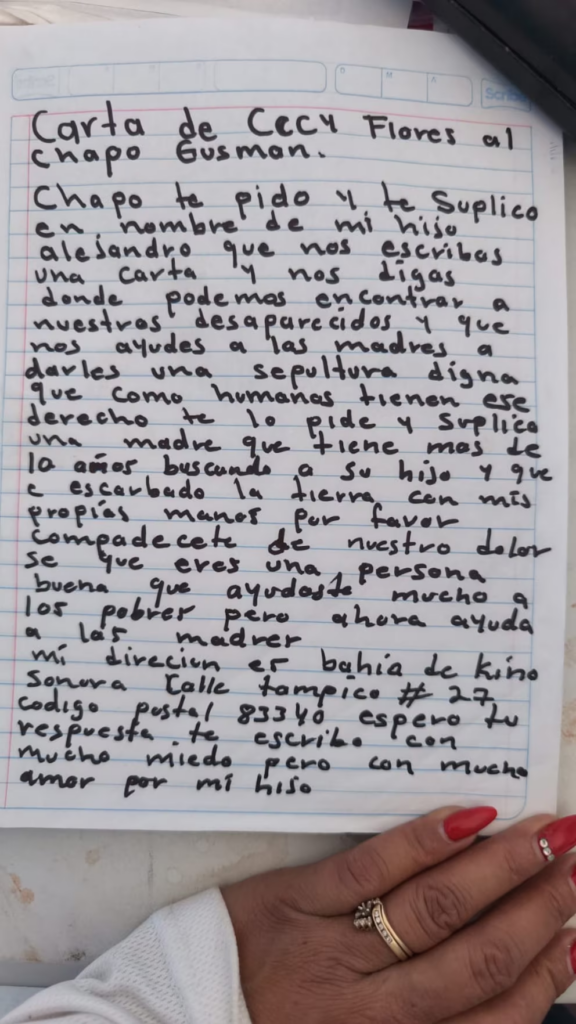 Scribe
D M A
Scribe
Carta de Cecy Flores al
chapo Gusman.
Chapo te pido y te Suplico
en nombre de mi hijo
alejandro que nos escribas
una carta y nos digas
donde podemos encontrar a
nuestros desaparecidos y que
nos ayudes a las madres a
darles una sepultura digna
que como humanas tienen ese
derecho te lo pide y Suplico
una madre que tiene mas de
10 años buscando a su hijo y que
e escarbado la tierra con mis
propias manos por favor
compadecete de nuestro dolor
se que eres una persona
buena que ayudaste mucho a
los pobrer pero ahora ayuda
a las madrer
mi direcion er bahia de Kino
Sonora Calle tampico # 27
codigo postal 83340 espero tu
respuesta te escribo con
mucho miedo pero con mucho
amor por mi hijo